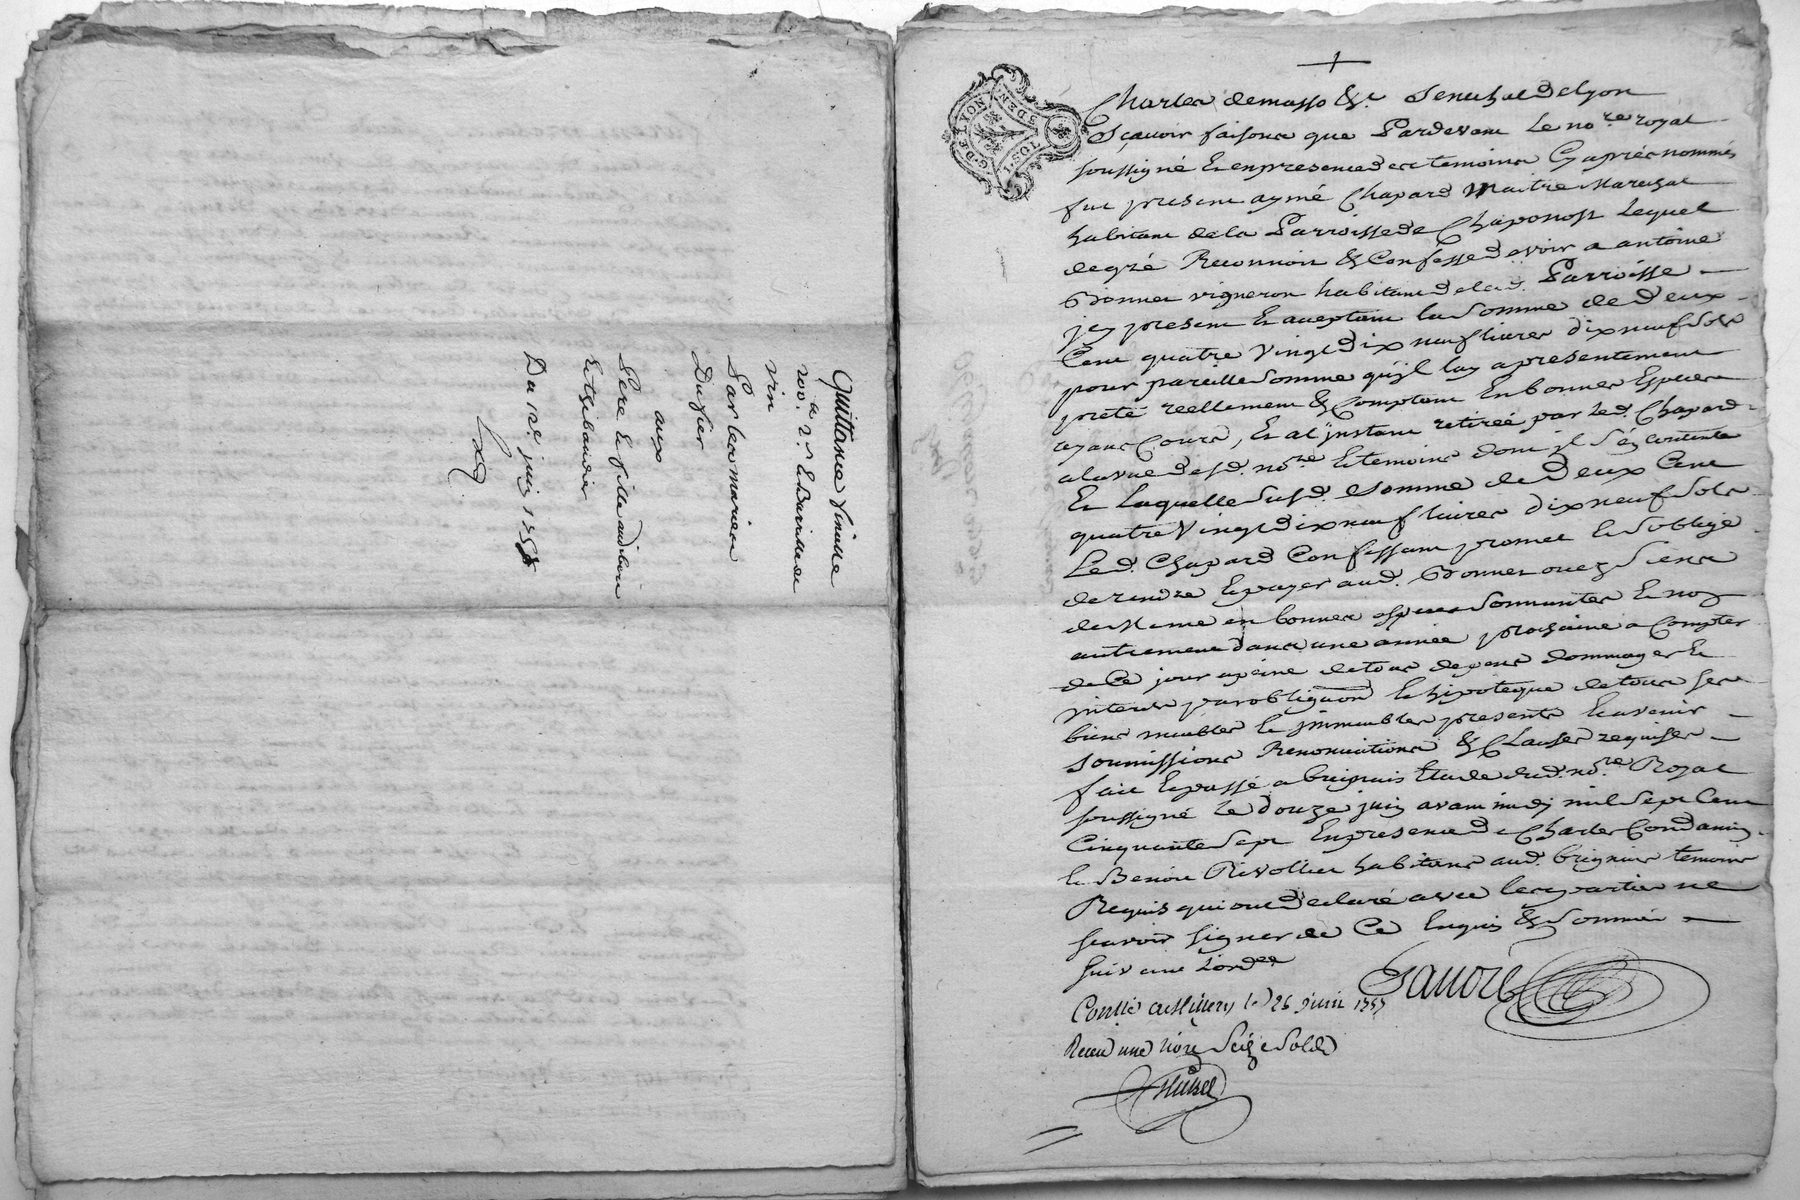 Quittance finalle
200.# 2.s & Barrille de
vin
Par les mariés
Dufier
aux
Pere & fille
& thibaudier
Du 12e. juin 1757
G.DE LYON
TOS.I
SDEN.
Charles demasso &c. Senechal de Lyon
Sçavoir faisons que Pardevant Le nore royal
soussigné & en presence des temoins Cy aprés nommés
fut present aymé Chapard Maitre Marechal
habitant de la Parroisse de Chaponost Lequel
de gré Reconnoit & Confesse devoir a antoine
Bonnet vigneron habitant de lad. Parroisse
jcy present & aceptant la Somme de Deux
Cent quatre Vingt dix neuf livres dix neuf Sols
pour pareille Somme qu'jl luy a presentement
preté réellement & Comptant En bonnes Especes
ayant Cours, & a l'jnstant retirée par Led. Chapard
a la vue de sd. nore & temoins dont jl s'en Contente
& Laquelle susd. Somme de Deux Cent
quatre Vingt dix neuf livres dix neuf Sols
Led. Chapard Confessant promet & s'oblige
de rendre & payer aud. Bonnet ou ez Siens
de Meme en bonnes especes Sonnantes & non
autrement dans une année prochaine a Compter
de Ce jour a peine de tous depens dommages &
interets par obligaon & hipoteque de tous ses
biens meubles & jmmeubles presents & avenir
Soumissions Renonciations & Clauses requises
fait & passé a brignais Etude dud. nore Royal
soussigné le douze juin avant midy mil Sept Cent
Cinquante Sept En presence de Charles Condamin
& Benoit Rivollier habitants aud. brignais temoins
Requis qui ont declaré avec les parties ne
scavoir signer de Ce Enquis & Sommés
suivant L'ordce
Conllé le 26 juin 1757
Receu une livre Seize Sols